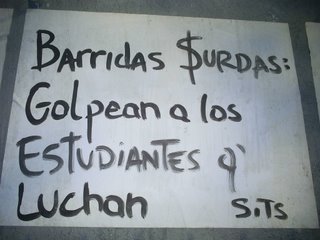 Barridas $URDAS:
Golpean a los
ESTUDIANTES q'
Luchan S.Ts